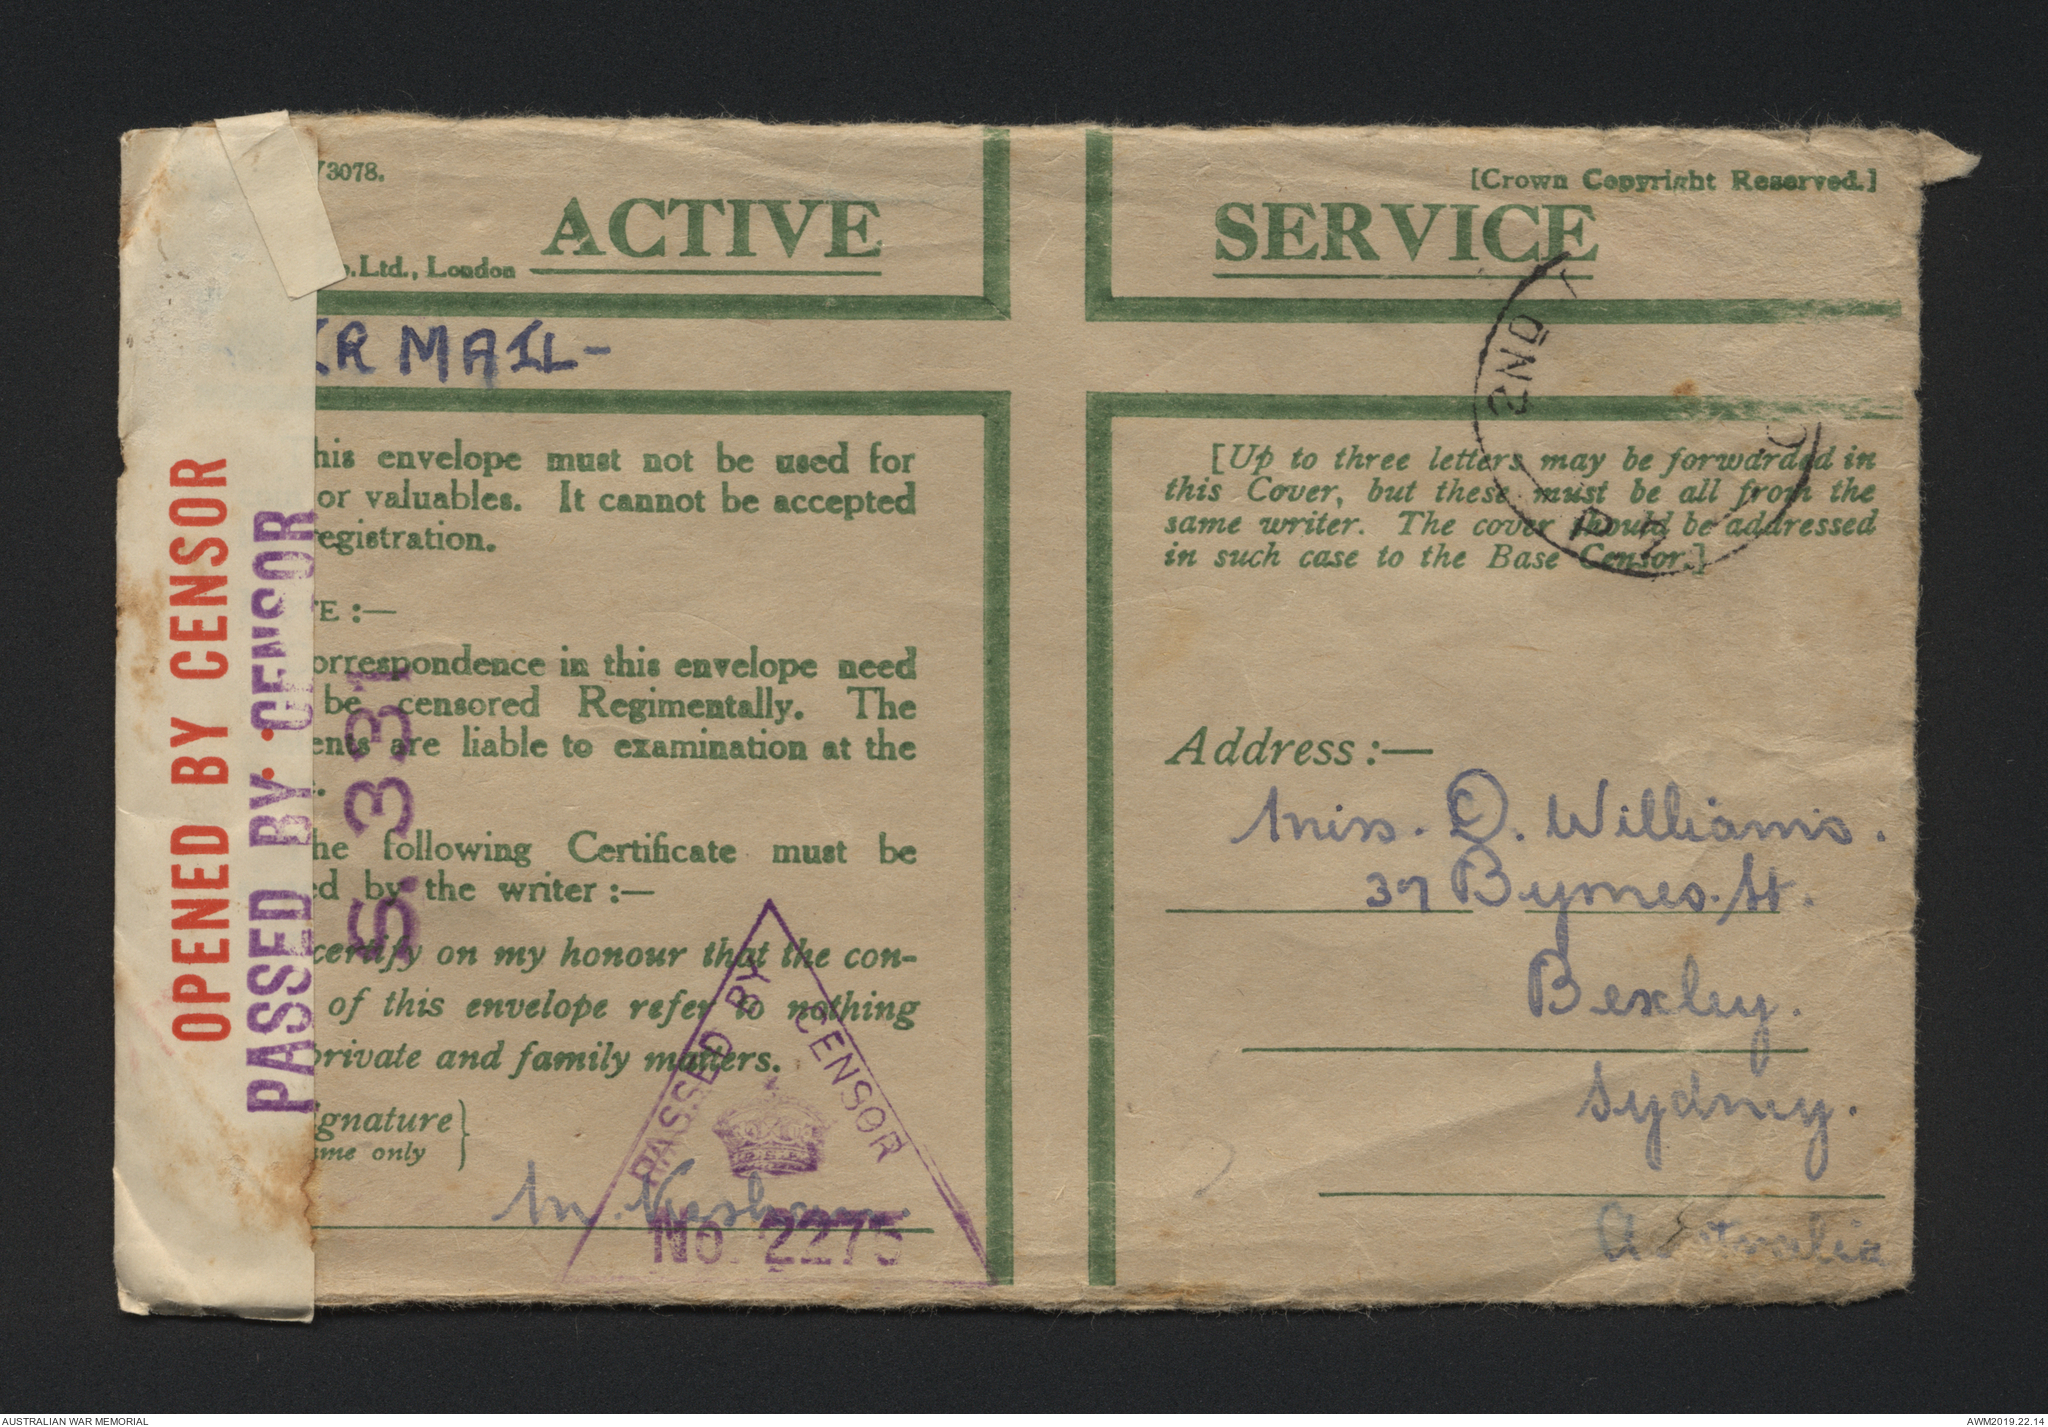 /3078.
[Crown Copyright Reserved.]
ACTIVE SERVICE
o.Ltd., London
AIR MAIL-
his envelope must not be used for
or valuables. It cannot be accepted
registration.
TE :—
orrespondence in this envelope need
be censored Regimentally. The
ents are liable to examination at the
he following Certificate must be
ed by the writer :—
certify on my honour that the con-
of this envelope refer to nothing
private and family matters.
ignature}
ame only
M.
OPENED BY CENSOR
PASSED BY CENSOR
S. 331
PASSED BY CENSOR
No. 2275
2ND
[Up to three letters may be forwarded in
this Cover, but these must be all from the
same writer. The cover should be addressed
in such case to the Base Censor.]
Address :—
Miss. D. Williams.
37 Byrnes. St.
Bexley.
Sydney.
Australia
AUSTRALIAN WAR MEMORIAL
AWM2019.22.14